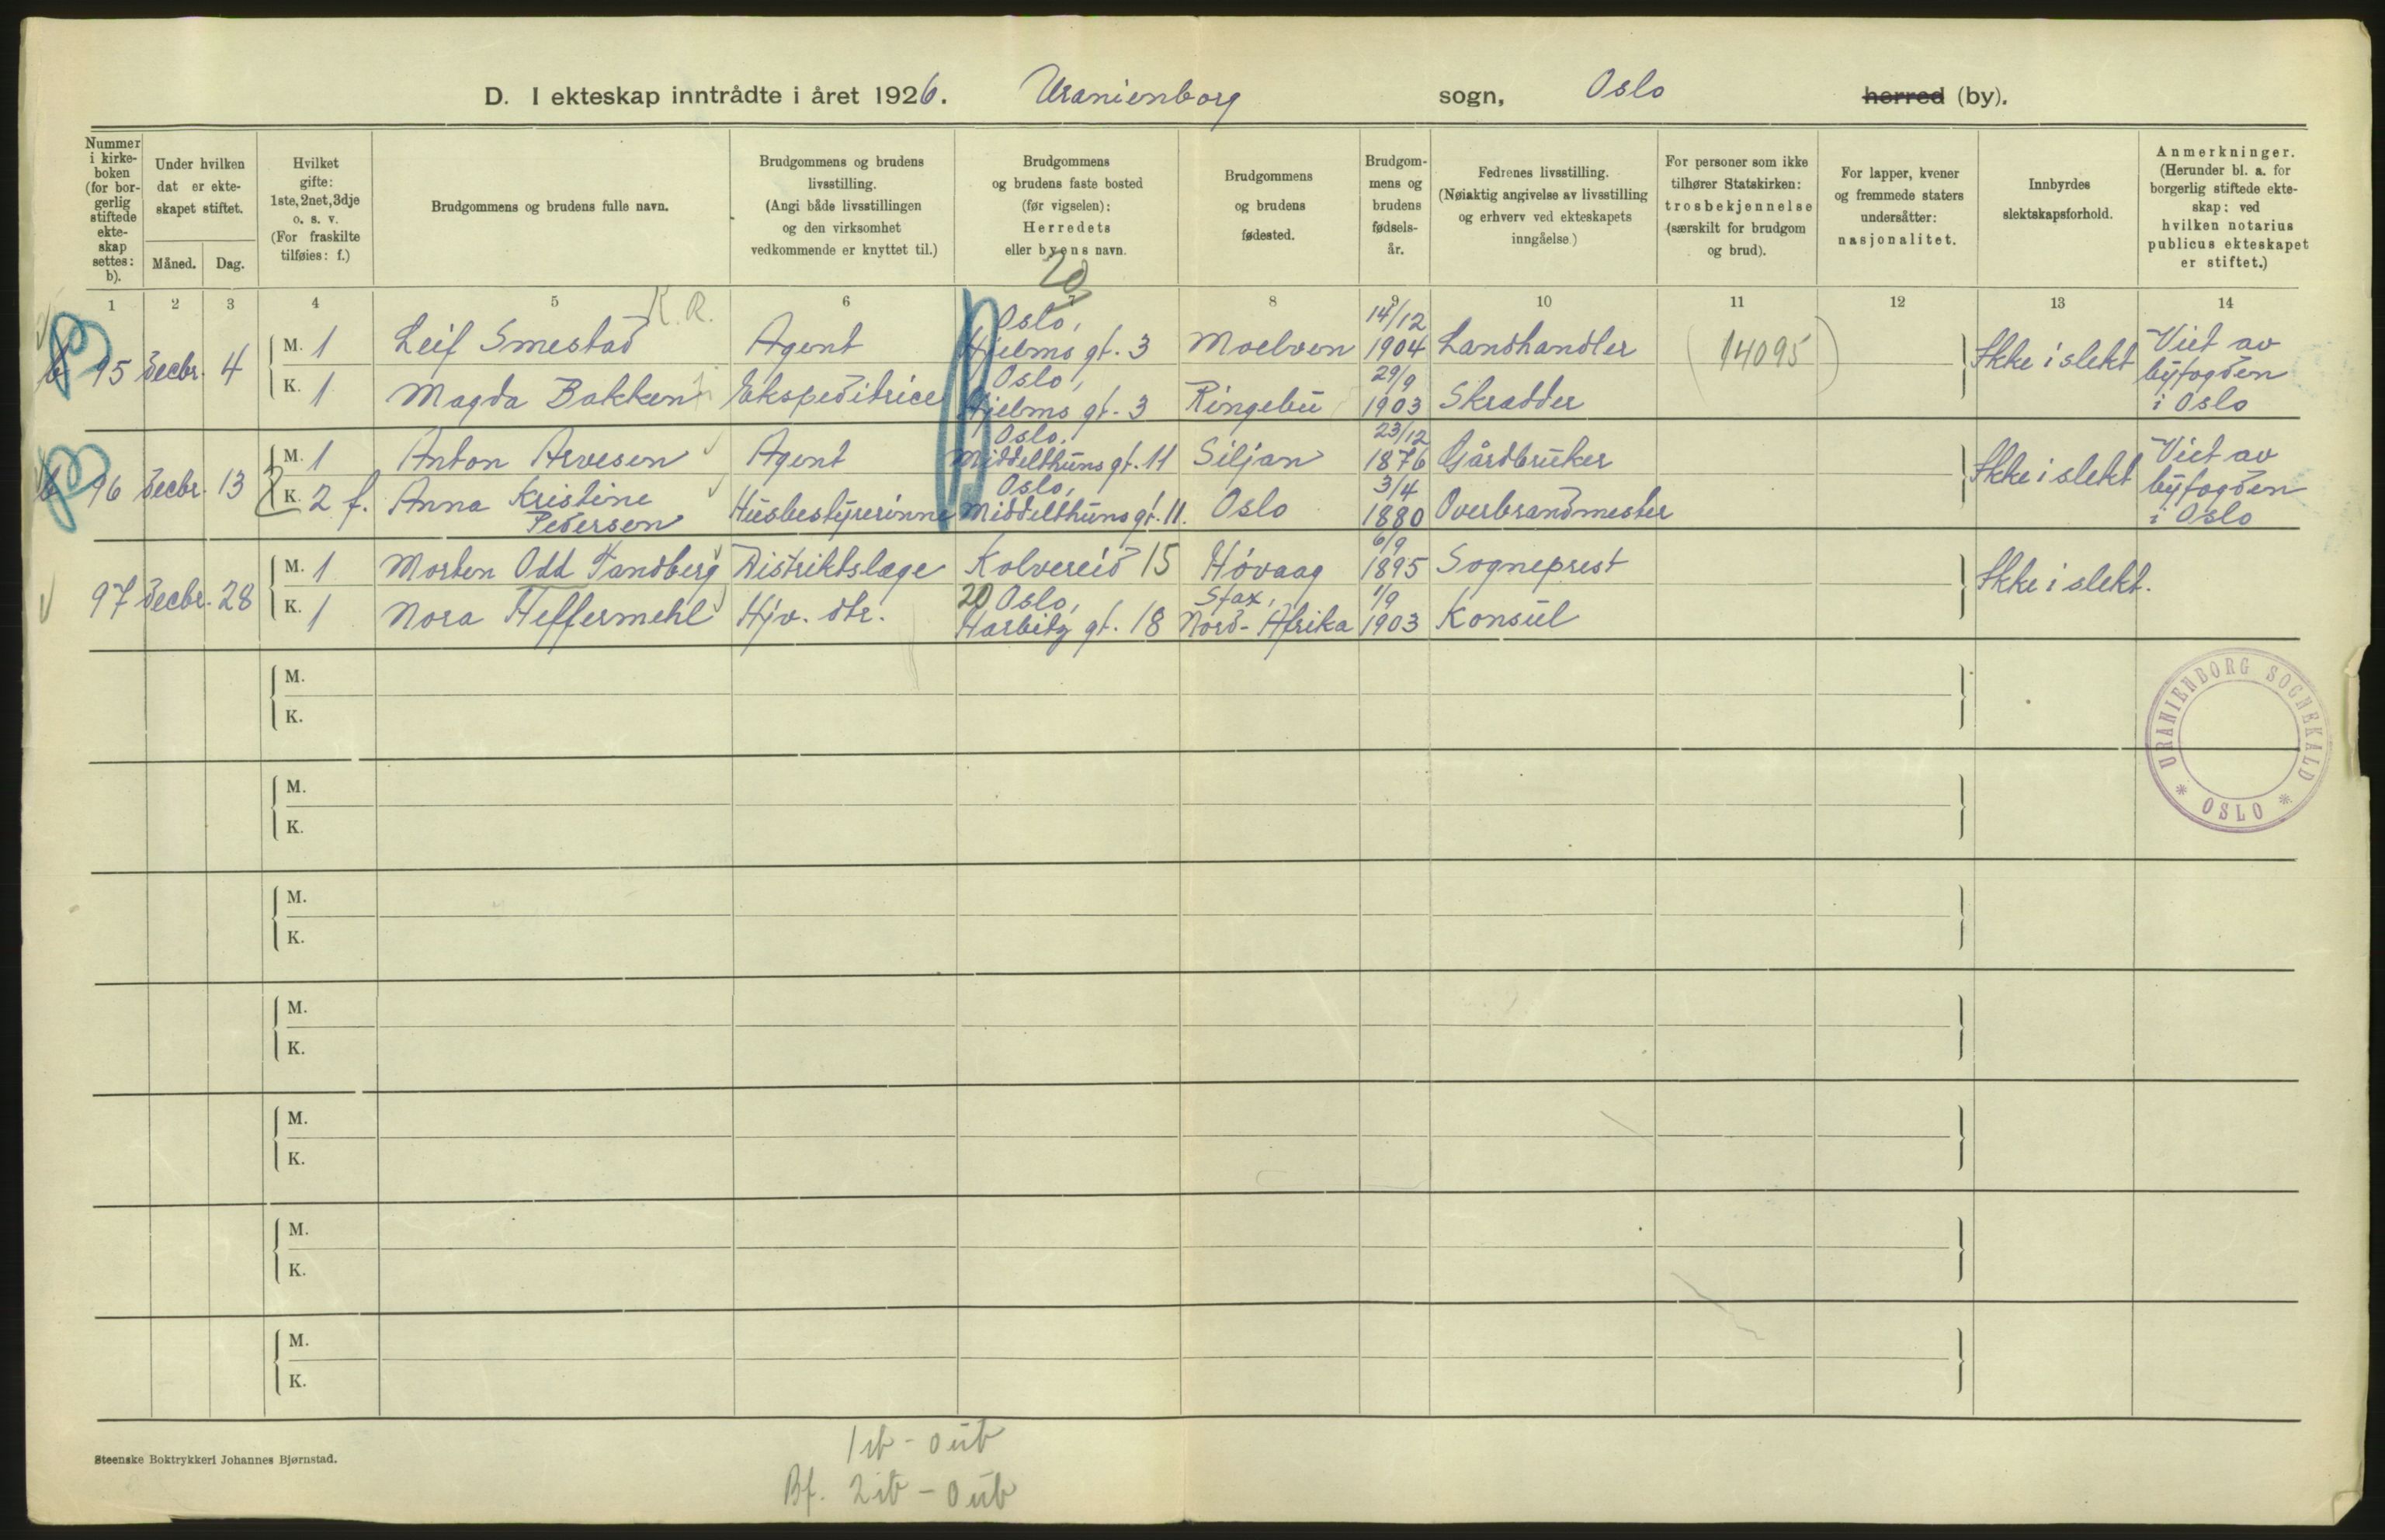 D. I ekteskap inntrådte i året 1926. Uranienborg sogn, Oslo herred (by).
Nummer i kirke-boken (for bor-gerlig stiftede ekte-skap settes: b).
Under hvilken dat er ekte-skapet stiftet.
Måned. Dag.
Hvilket gifte: 1ste, 2net, 3dje o. s. v. (For fraskilte tilføies: f.)
Brudgommens og brudens fulle navn.
Brudgommens og brudens livsstilling. (Angi både livsstillingen og den virksomhet vedkommende er knyttet til.)
Brudgommens og brudens faste bosted (før vigselen): Herredets eller byens navn.
Brudgommens og brudens fødested.
Brudgom-mens og brudens fødsels-år.
Fedrenes livsstilling. (Nøiaktig angivelse av livsstilling og erhverv ved ekteskapets inngåelse)
For personer som ikke tilhører Statskirken: trosbekjennelse (særskilt for brudgom og brud).
For lapper, kvener og fremmede staters undersåtter: nasjonalitet.
Innbyrdes slektskapsforhold.
Anmerkninger. (Herunder bl. a. for borgerlig stiftede ekte-skap: ved hvilken notarius publicus ekteskapet er stiftet.)
20
1 2 3 4 5 6 7 8 9 10 11 12 13 14
K. R.
b 95 Decbr. 4
M. 1 Leif Smestad Agent Oslo, Hjelms gt. 3 Moelven 14/12 1904 Landhandler (14095)
K. 1 Magda Bakken Ekspeditrice Oslo, Hjelms gt. 3 Ringebu 29/9 1903 Skrædder
Ikke i slekt
Viet av
byfogden
i Oslo
b 96 Decbr. 13
M. 1 Anton Arvesen Agent Oslo, Middelthuns gt. 11 Siljan 23/12 1876 Gårdbruker
K. 2 f. Anna Kristine Pedersen Husbestyrerinne Oslo, Middelthuns gt. 11. Oslo 3/4 1880 Overbrandmester
Ikke i slekt
Viet av
byfogden
i Oslo
97 Decbr. 28
M. 1 Morten Odd Sandberg Distriktslæge Kolvereid 15 Høvaag 6/9 1895 Sogneprest
K. 1 Nora Heffermehl Hjv. dtr. 20 Oslo, Harbitz gt. 18 Sfax, Nord-Afrika 1/9 1903 Konsul
Ikke i slekt.
M.
K.
URANIENBORG SOGNEKALD * OSLO *
M.
K.
M.
K.
M.
K.
M.
K.
M.
K.
M.
K.
Steenske Boktrykkeri Johannes Bjørnstad.
1 ib - 0 üb
Bf. 2 ib - 0 üb